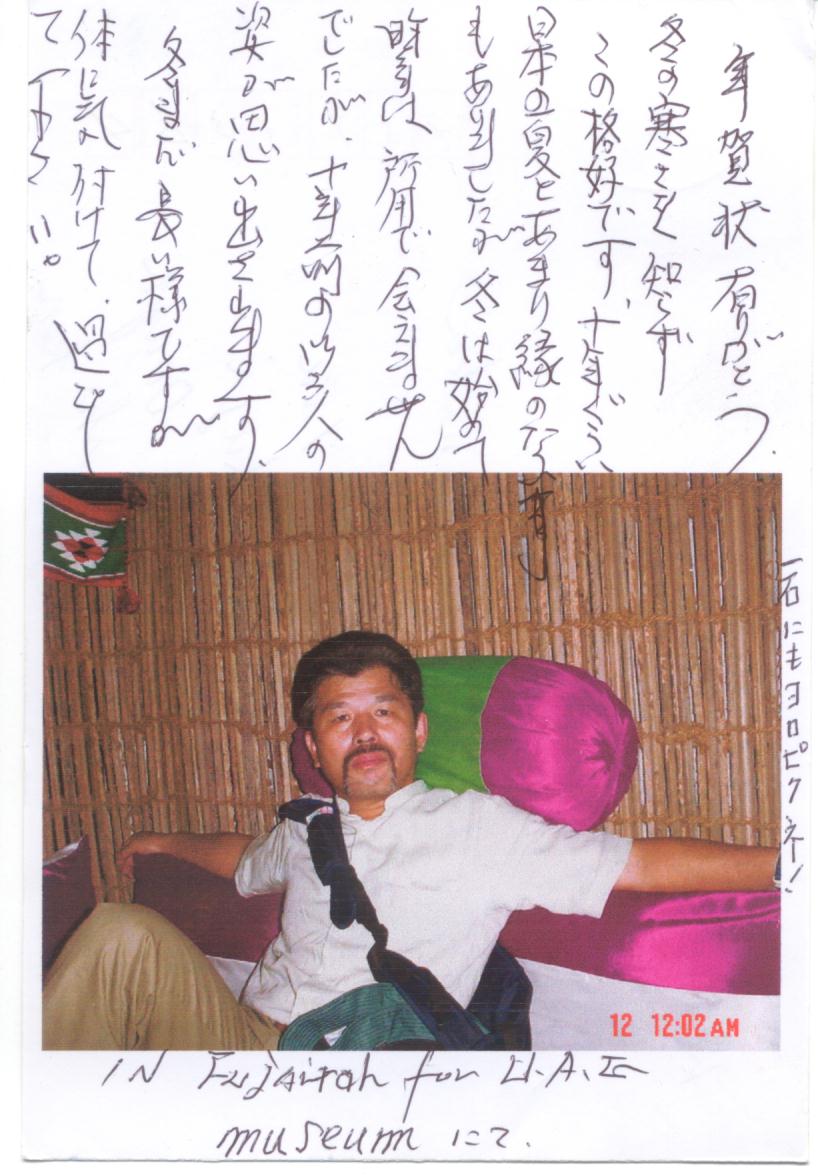 年賀状 有りがとう.
冬の寒さを 知らず
この格好です、十年ぐらい
日本の夏とあまり縁のない事
もありましたが 冬は始めて
昨年は 所用で 会えません
でしたが、十年前の 人の
姿が思い出されます.
冬まだ長い様ですが
体に気を付けて、過ごし
て下さい。
石にもヨロピクネ!
12 12:02AM
IN Fujairah for U.A.E
museum にて.